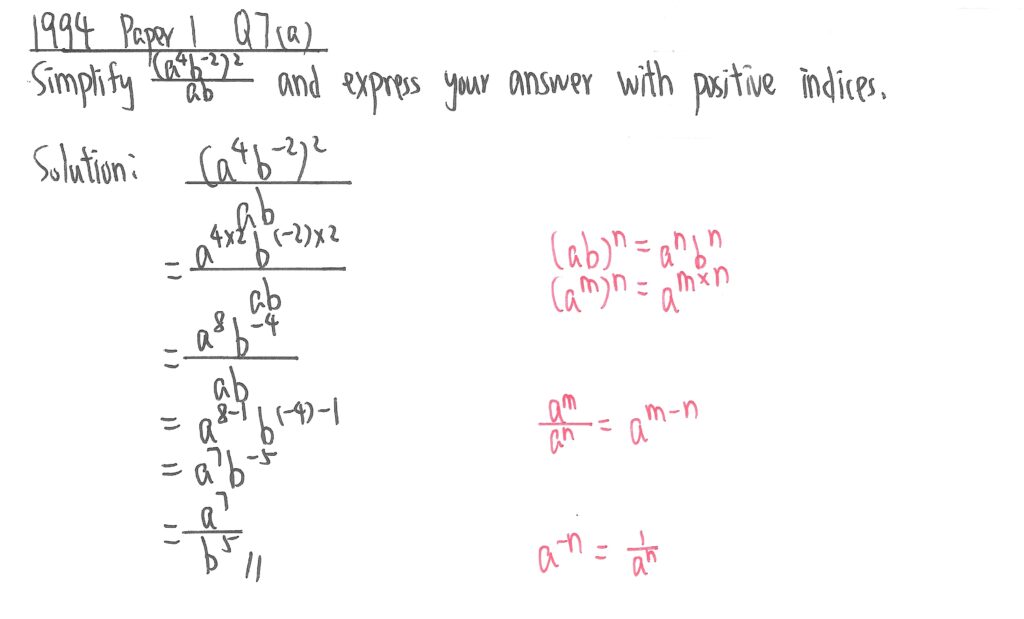 1994 Paper 1 Q7(a)
Simplify (a⁴b⁻²)²/ab and express your answer with positive indices.
Solution: (a⁴b⁻²)²/ab
= a⁴ˣ²b⁽⁻²⁾ˣ²/ab
(ab)ⁿ = aⁿbⁿ
(aᵐ)ⁿ = aᵐˣⁿ
= a⁸b⁻⁴/ab
= a⁸⁻¹b⁽⁻⁴⁾⁻¹
aᵐ/aⁿ = aᵐ⁻ⁿ
= a⁷b⁻⁵
= a⁷/b⁵ //
a⁻ⁿ = 1/aⁿ